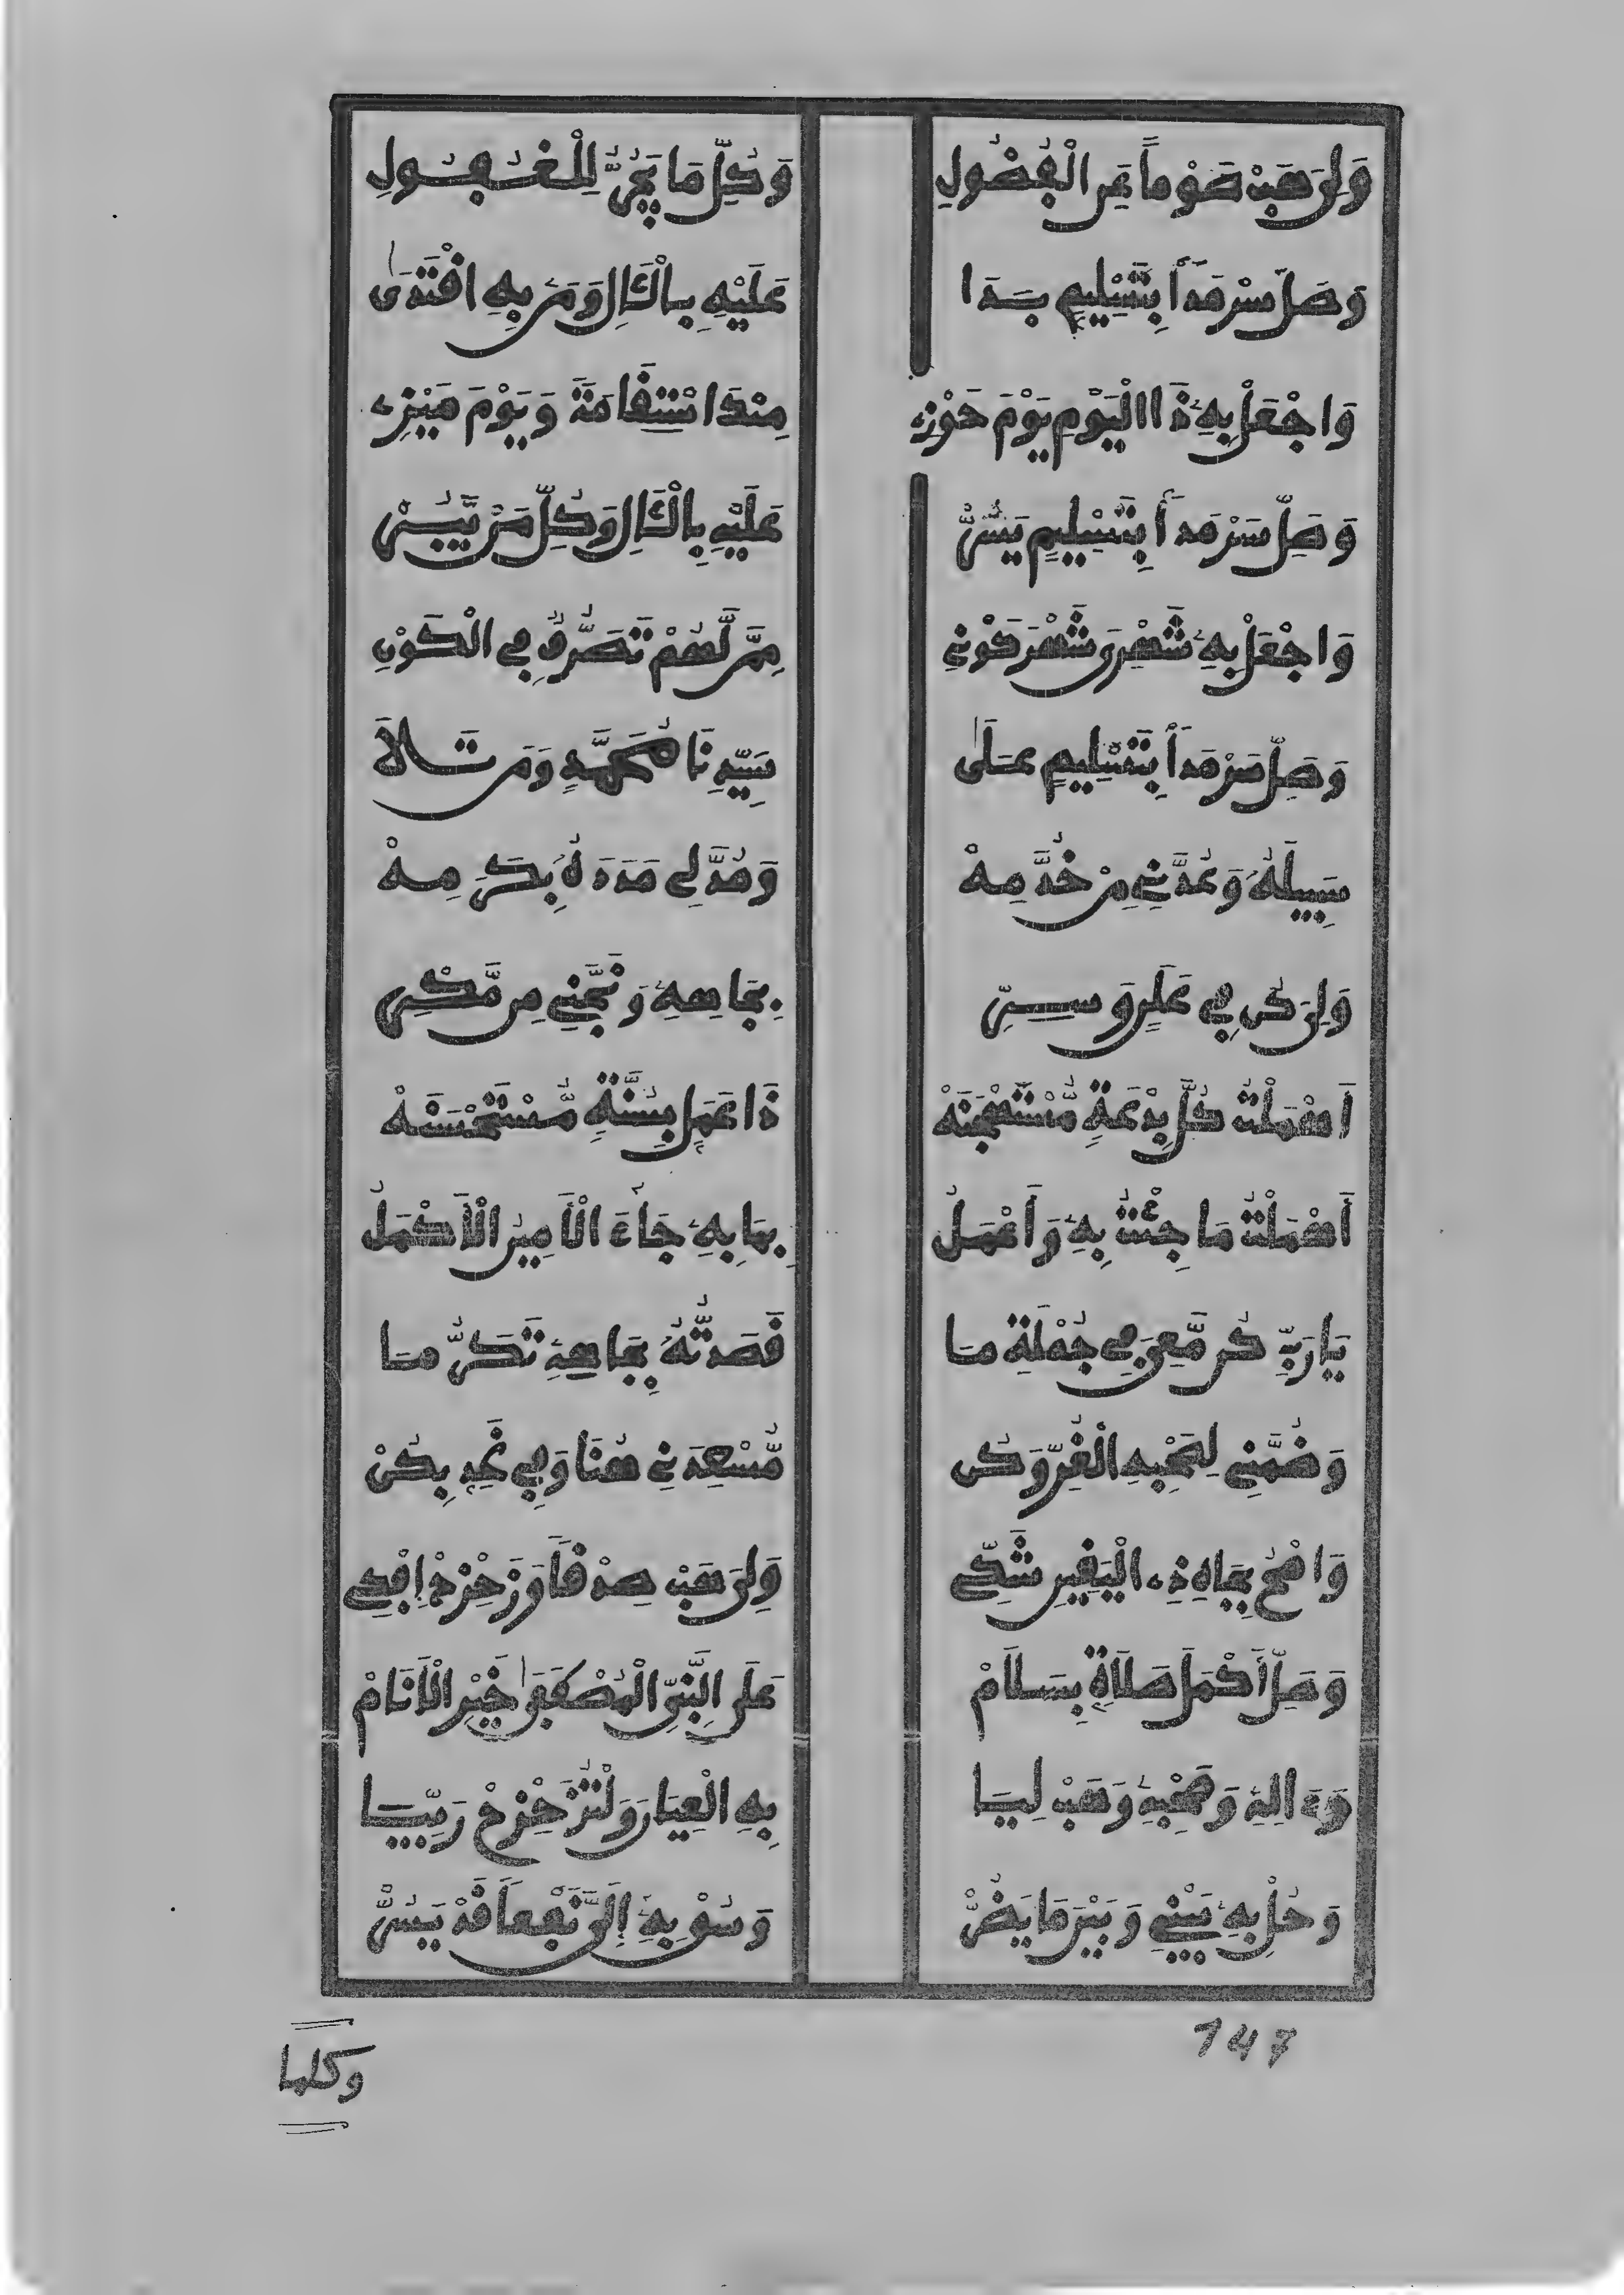 وَلِيَ هَبْ صَوْماً عَنِ الْفُضُولِ وَكُلِّ مَا يَجُرُّ لِلْغُفُولِ
وَصَلِّ سَرْمَداً بِتَسْلِيمٍ بَدَا عَلَيْهِ بِالْآلِ وَمَن بِهِ اقْتَدَى
وَاجْعَلْ بِهِ ذَا الْيَوْمِ يَوْمَ حَوْزِ مِنْكَ اسْتِقَامَةً وَيَوْمَ مَيْزِ
وَصَلِّ سَرْمَداً بِتَسْلِيمٍ يَسُرّْ عَلَيْهِ بِالْآلِ وَكُلِّ مَنْ يَبُرّْ
وَاجْعَلْ بِهِ شَهْرِي شَهْرَ كَوْنِي مِمَّن لَّهُمْ تَصَرُّفٌ فِي الْكَوْنِ
وَصَلِّ سَرْمَداً بِتَسْلِيمٍ عَلَى سَيِّدِنَا مُحَمَّدٍ وَمَن تَلاَ
سَبِيلَهُ وَعُدَّنِي مِنْ خُدَّمِهْ وَمُدَّ لِي مَدَدَهُ بِكَرَمِهْ
وَلِيَ كُن فِي عَلَنٍ وَسِرِّ بِجَاهِهِ وَنَجِّنِي مِن مَّكْرِ
أَهْمَلْتُ كُلَّ بِدْعَةٍ مُّسْتَهْجَنَهْ ذَا عَمَلٍ بِسُنَّةٍ مُّسْتَحْسَنَهْ
أَهْمَلْتُ مَا جِئْتُ بِهِ وَأَعْمَلُ بِمَا بِهِ جَاءَ الْأَمِينُ الْأَكْمَلُ
يَا رَبِّ كُن مَّعِي فِي جُمْلَةِ مَا قَصَدتُّهُ بِجَاهِهِ تَكَرُّمَا
وَضُمَّنِي لِصَحْبِهِ الْغُرِّ وَكُن مُّسْعِدَنِي هُنَا وَفِي غَدٍ بِكُنْ
وَامْحُ بِجَاهِ ذِي الْيَقِينِ شَكِّي وَلِيَ هَبْ صِدْقاً وَزَحْزِحْ إِفْكِي
وَصَلِّ أَكْمَلَ صَلَاةٍ بِسَلَامْ عَلَى النَّبِيِّ الْمُصْطَفَى خَيْرِ الْأَنَامْ
وَءَالِهِ وَصَحْبِهِ وَهَبْ لِيَا بِهِ الْعِيَانَ وَلْتُزَحْزِحْ رَيْبِيَا
وَحُلْ بِهِ بَيْنِي وَبَيْنَ مَا يَضُرّْ وَسُقْ بِهِ إِلَيَّ نَفْعاً قَدْ يَسُرّْ
147
وكلما